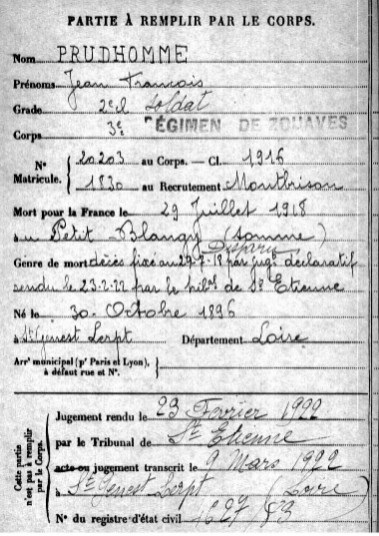 PARTIE À REMPLIR PAR LE CORPS.
Nom PRUDHOMME
Prénoms Jean Francois
Grade 2e cl Soldat
Corps 3e RÉGIMENT DE ZOUAVES
N° Matricule. 20203 au Corps. — Cl. 1916
1830 au Recrutement Montbrison
Mort pour la France le 29 Juillet 1918
au Petit Blangy (Somme)
Disparu
Genre de mort décès fixé au 29-7-18 par jugt déclaratif
rendu le 23-2-22 par le tribal de St Etienne
Né le 30 Octobre 1896
à St Genest Lerpt Département Loire
Arrt municipal (pr Paris et Lyon), à défaut rue et N°.
Cette partie n'est pas à remplir par le Corps.
Jugement rendu le 23 Fevrier 1922
par le Tribunal de St Etienne
acte ou jugement transcrit le 9 Mars 1922
à St Genest Lerpt (Loire)
N° du registre d'état civil